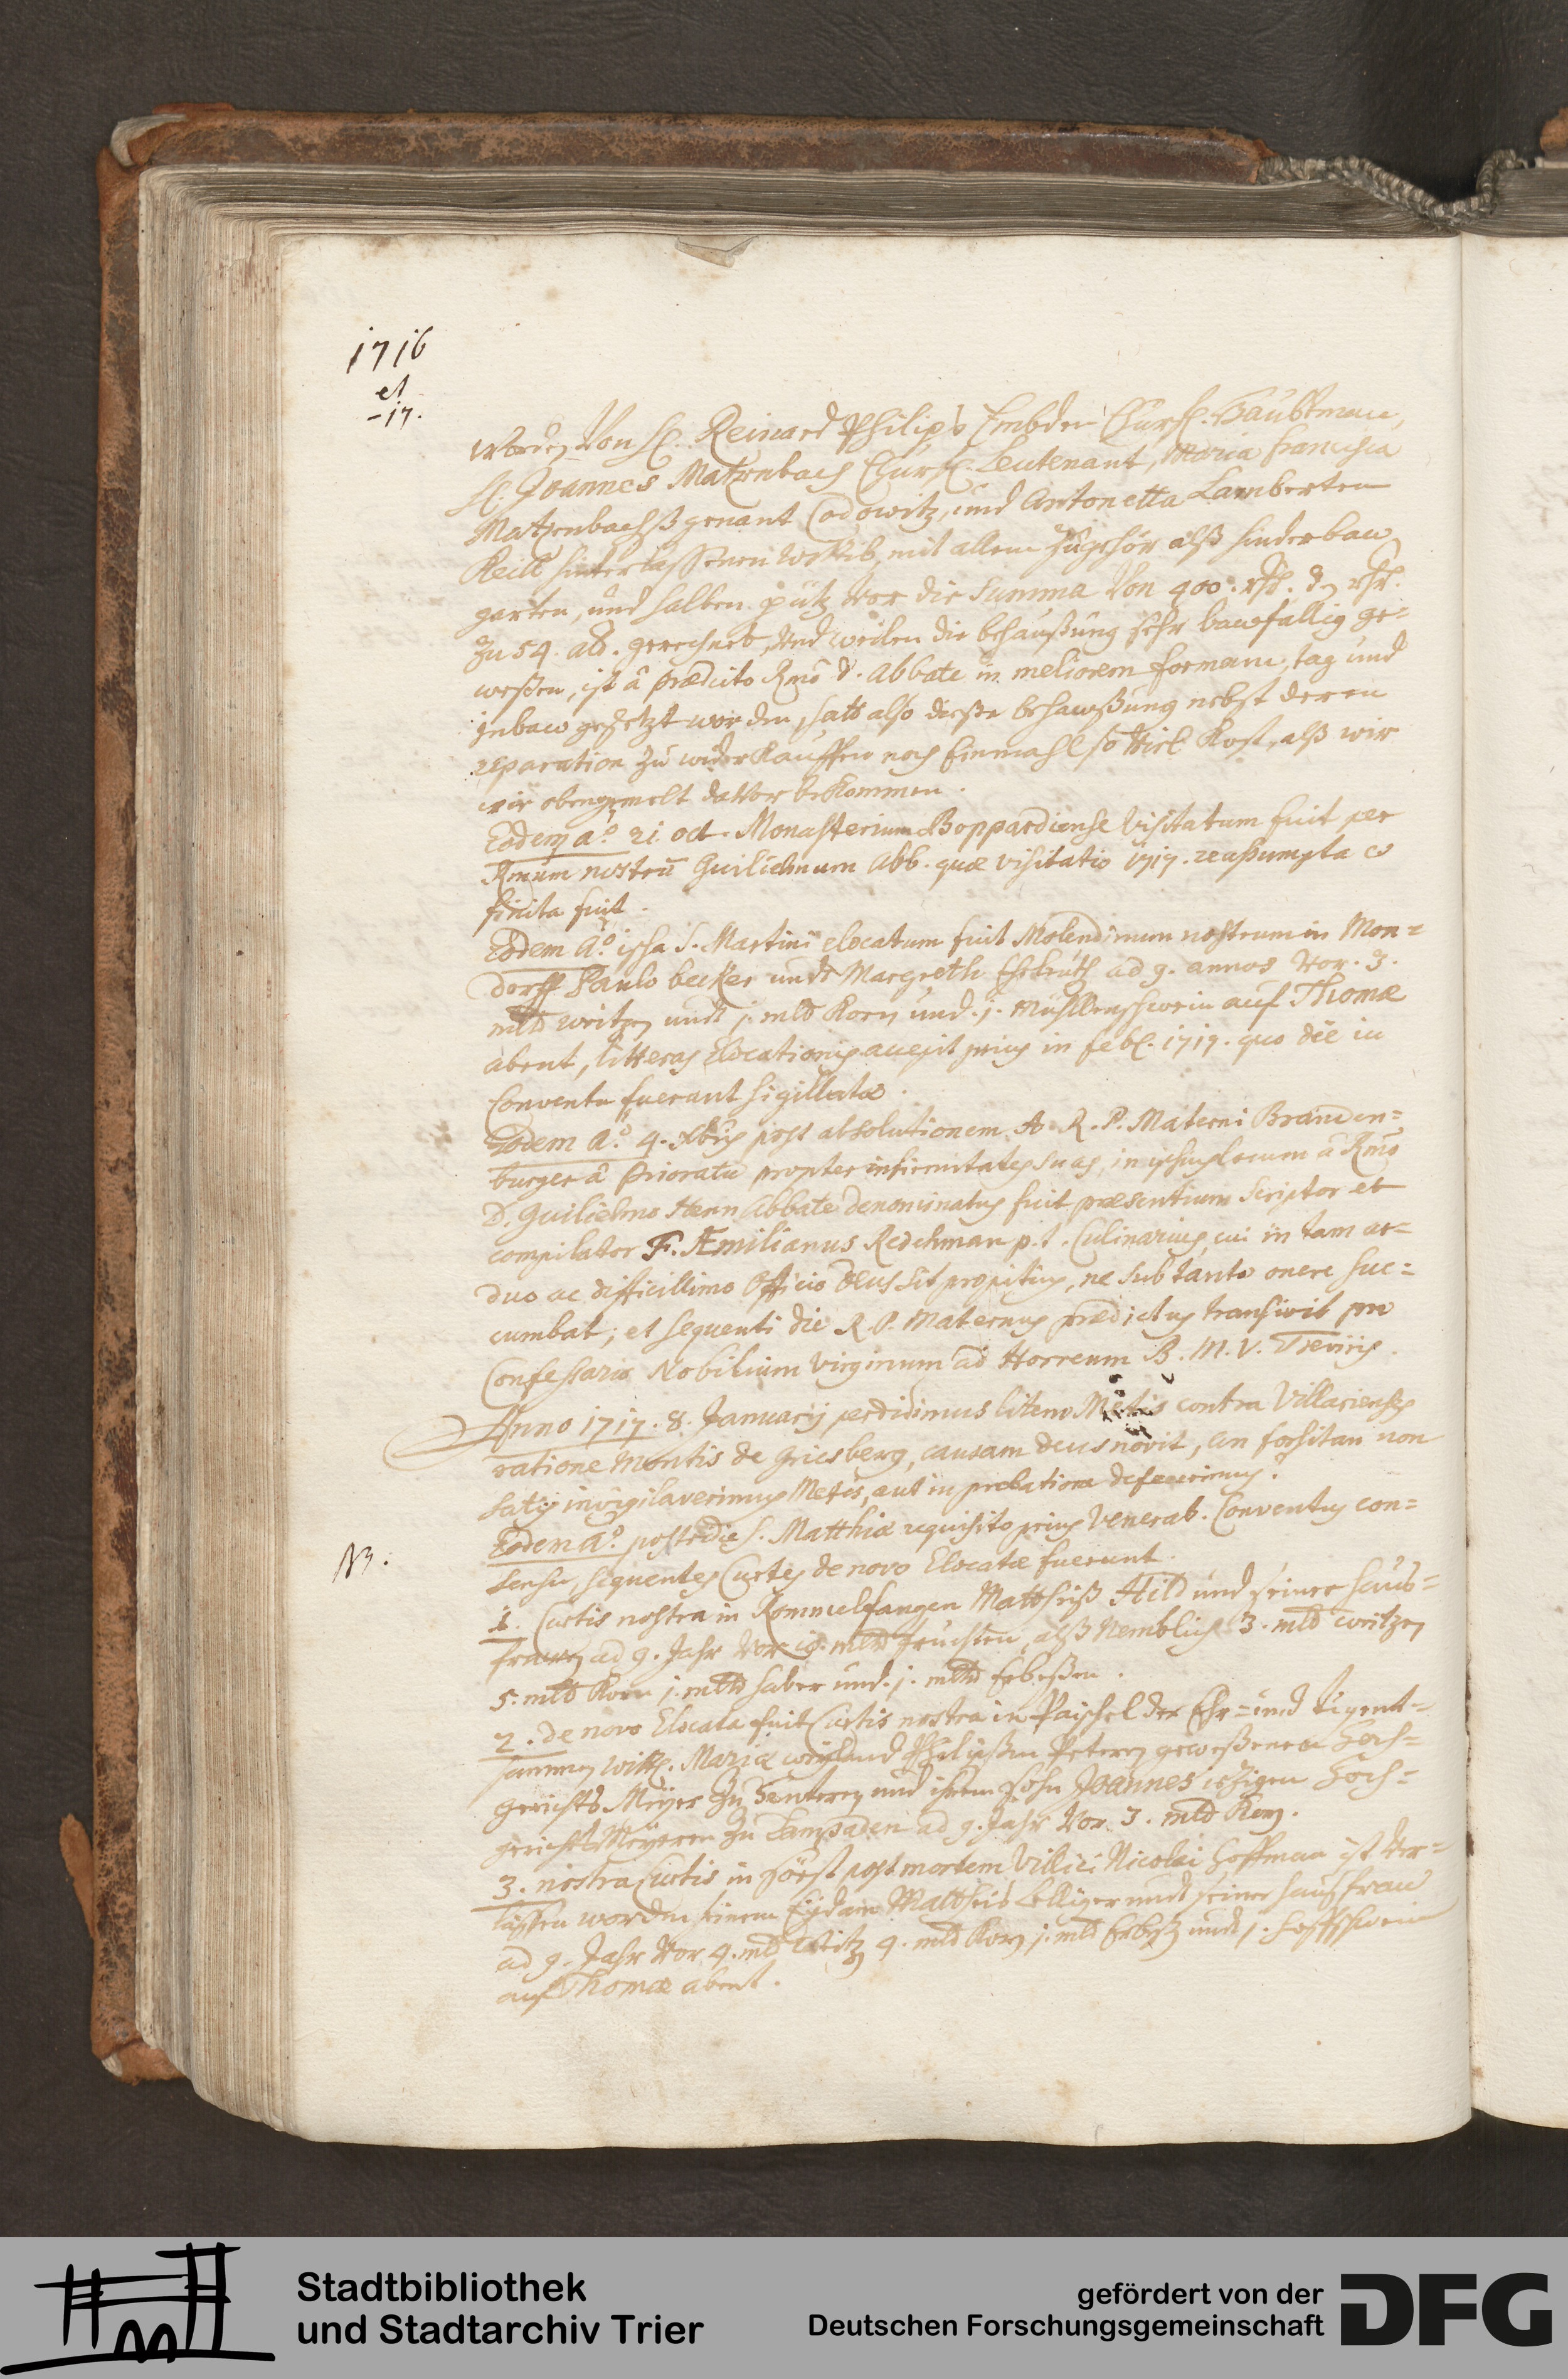 1716
et
-17.
worden Von H. Reinard Philips Embden Churf. Haubtman,
H. Joannes Matzenbach Churf. Leutenant, Maria Francisca
Matzenbachß genant Codowitz, und Antonetta Lamberten
Keill hinterlassenen Wittib, mit allem Zugehör alß hinderbau
garten, und halben pütz Vor die Summa Von 400. rth. den rth.
zu 54. alb. gerechnet, Und weilen die behaußung sehr bawfällig ge-
weßen, ist â prædicto Rmo D. Abbate in meliorem formam, tag und
inbaw gesetzt worden, hatt also dieße behaußung nebst deren
reparation zu widerkauffen noch Einmahl so Viel Kost, alß wir
wir obengemelt davor bekommen.
Eodem a.o 21. oct. Monasterium Boppardiense Visitatum fuit per
Rmum nostrū Guilielmum Abb. quæ visitatio 1717. reassumpta et
finita fuit.
Eodem A.o ipsa S. Martini elocatum fuit Molendinum nostrum in Mon=
dorff Paulo becker undt Margreth Eheleuth ad 9. annos Vor. 3.
mltr weitzen undt j. mltr Korn und. j. Mühlenschwein auf Thomæ
abent, litteras Elocationis avexit prius in feb. 1719. quo die in
Conventu fuerant sigillatæ.
Eodem A.o 4. Xbris post absolutionem A. R. P. Materni Branden=
burger â Prioratu propter infirmitates suas, in ipsius locum â Rmo
D. Guilielmo Henn Abbate denominatus fuit præsentium Scriptor et
compilator F. Æmilianus Redchman p. t. Culinarius, cui in tam ar=
duo ac difficillimo Officio Deus sit propitius, ne sub tanto onere suc=
cumbat; et sequenti die R. P. Maternus prædictus transivit pro
Confessario Nobilium Virginum ad Horreum B. M. V. Treviris.
Anno 1717. 8. Januarij perdidimus litem Metis contra Villarienses
ratione Montis de Griesberg, causam deus novit, an forsitan non
satis invigilaverimus Metis, aut in probatione defecerimus.
NB.
Eodem A.o postridie S. Matthiæ requisito prius Venerab. Conventus con=
sensu, sequentes Curtes de novo Elocatæ fuerunt.
1. Curtis nostra in Kommelfangen Mattheiß Hild und seiner haus=
frawen ad 9. Jahr Vor 10. mltr früchten, alß Nemblich 3. mltr weitzen
5. mltr Korn j. mltr haber und. j. mltr Erbeßen.
2. De novo Elocata fuit Curtis nostra in Paschel der Ehr= und tugent=
samen Wittf. Mariæ weyland Philipßen Peteren geweßenen Hoch=
gerichts Meyer zu Zenteren und ihrem sohn Joannes ietzigen Hoch=
gerichts Meyeren zu Lampaden ad 9. Jahr Vor. 3. mltr Korn.
3. nostra Curtis in Hörst post mortem Villici Nicolai Hoffman ist Ver=
lassen worden seinem Eydam Mattheis undt seiner hausfrau
ad 9. Jahr Vor 4. mltr Weitzen 4. mltr Korn j. mltr Erbeß undt j. hoffschwein
auf Thomæ abent.
Stadtbibliothek
und Stadtarchiv Trier
gefördert von der
Deutschen Forschungsgemeinschaft
DFG